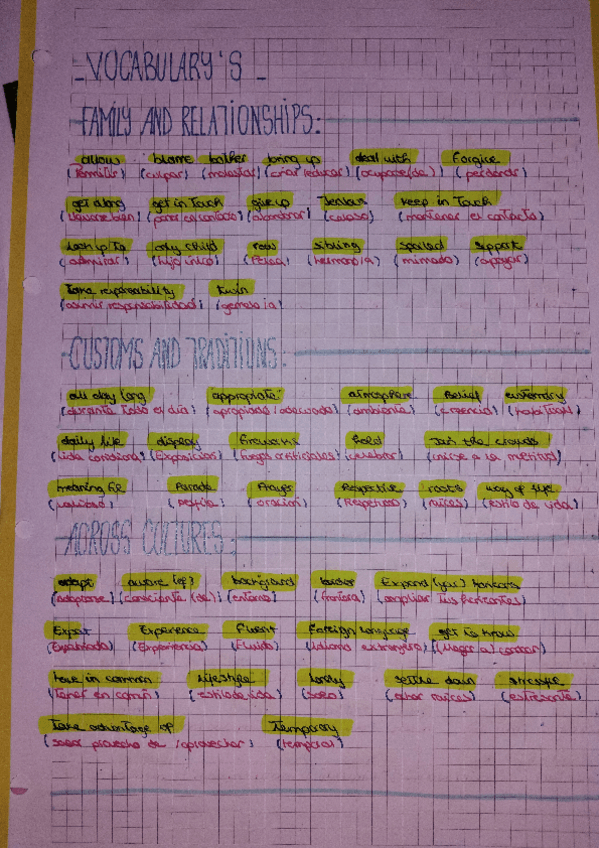 - VOCABULARY'S -
- FAMILY AND RELATIONSHIPS:
allow blame bother bring up deal with forgive
(Permitir) (culpar) (molestar) (criar/educar) (ocuparse/de) (perdonar)
get along get in Touch give up Jealous keep in Touch
(llevarse bien) (poner en contacto) (abandonar) (celoso) (mantener el contacto)
look up to only child row sibling spoiled support
(admirar) (hijo único) (Pelea) (hermano/a) (mimado) (apoyar)
Take responsability twin
(asumir responsabilidad) (gemelo/a)
- CUSTOMS AND TRADITIONS:
all day long appropiate atmosphere Belief
(durante todo el día) (apropiado/adecuado) (ambiente) (creencia)
daily life display fireworks hold Join the crowds
(vida cotidiana) (Exposición) (fuegos artificiales) (celebrar) (unirse a la multitud)
Parade Prayer roots way of life
(desfile) (oración) (Respetuoso) (raíces) (estilo de vida)
- ACROSS CULTURES:
adapt aware (of) background border Expand (your) horizons
(adaptarse) (consciente (de)) (entorno) (frontera) (ampliar tus horizontes)
Expat Experience fluent foreign language get to know
(Expatriado) (Experiencia) (Fluido) (idioma extranjero) (llegar a conocer)
have in common Lifestyle lonely settle down
(Tener en común) (estilo de vida) (solo) (echar raíces) (estresante)
Take advantage of Temporary
(sacar provecho de /aprovechar) (temporal)